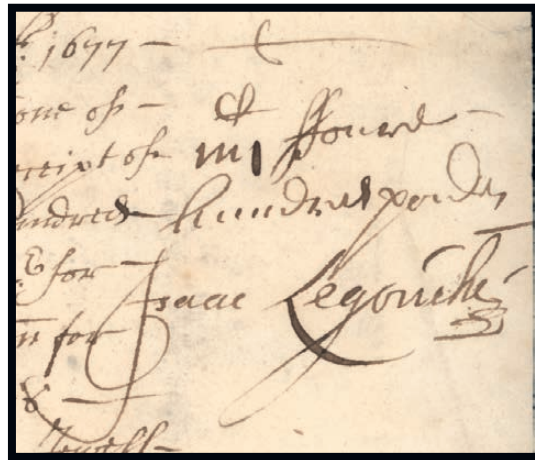 1677 —
one of —
ceipt of — iiij ffoure —
hundred — hundred pounds
for — Isaac Legouche
for